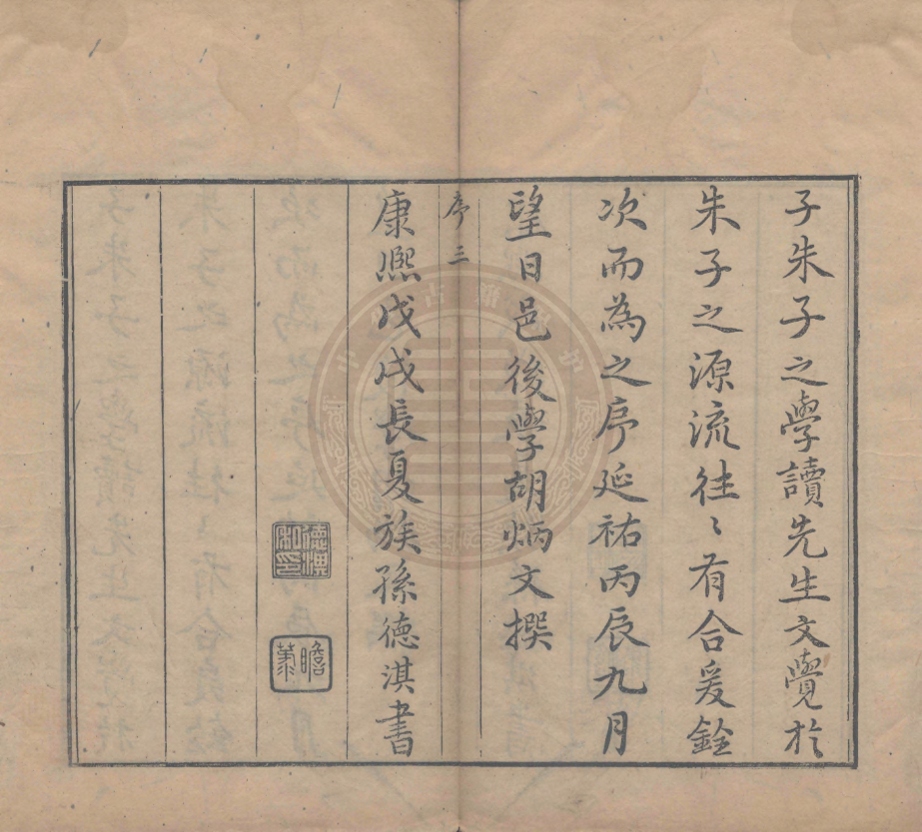 子朱子之學讀先生文覺於
朱子之源流往〻有合爰銓
次而為之序延祐丙辰九月
望日邑後學胡炳文撰
序 三
康熙戊戌長夏族孫德淇書
德淇私印
瞻菉